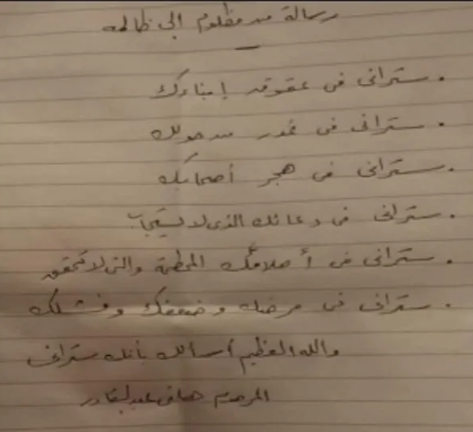 رسالة من مظلوم الى ظالمه
. ستراني في عقوق إبناءك
. ستراني في غدر من حولك
. ستراني في هجر أصحابك
. ستراني في دعائك الذي لا يستجاب
. ستراني في أحلامك المحطمة والتي لا تتحقق
. ستراني في مرضك وضعفك وفشلك
والله العظيم أسالك بأنك ستراني
المرحوم هاني عبدالقادر